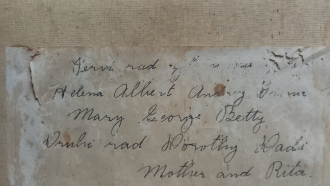 Pervi rad
Helena Albert Andrey
Mary George Betty
Druhi rad Dorothy Dadi
Mother and Rita.